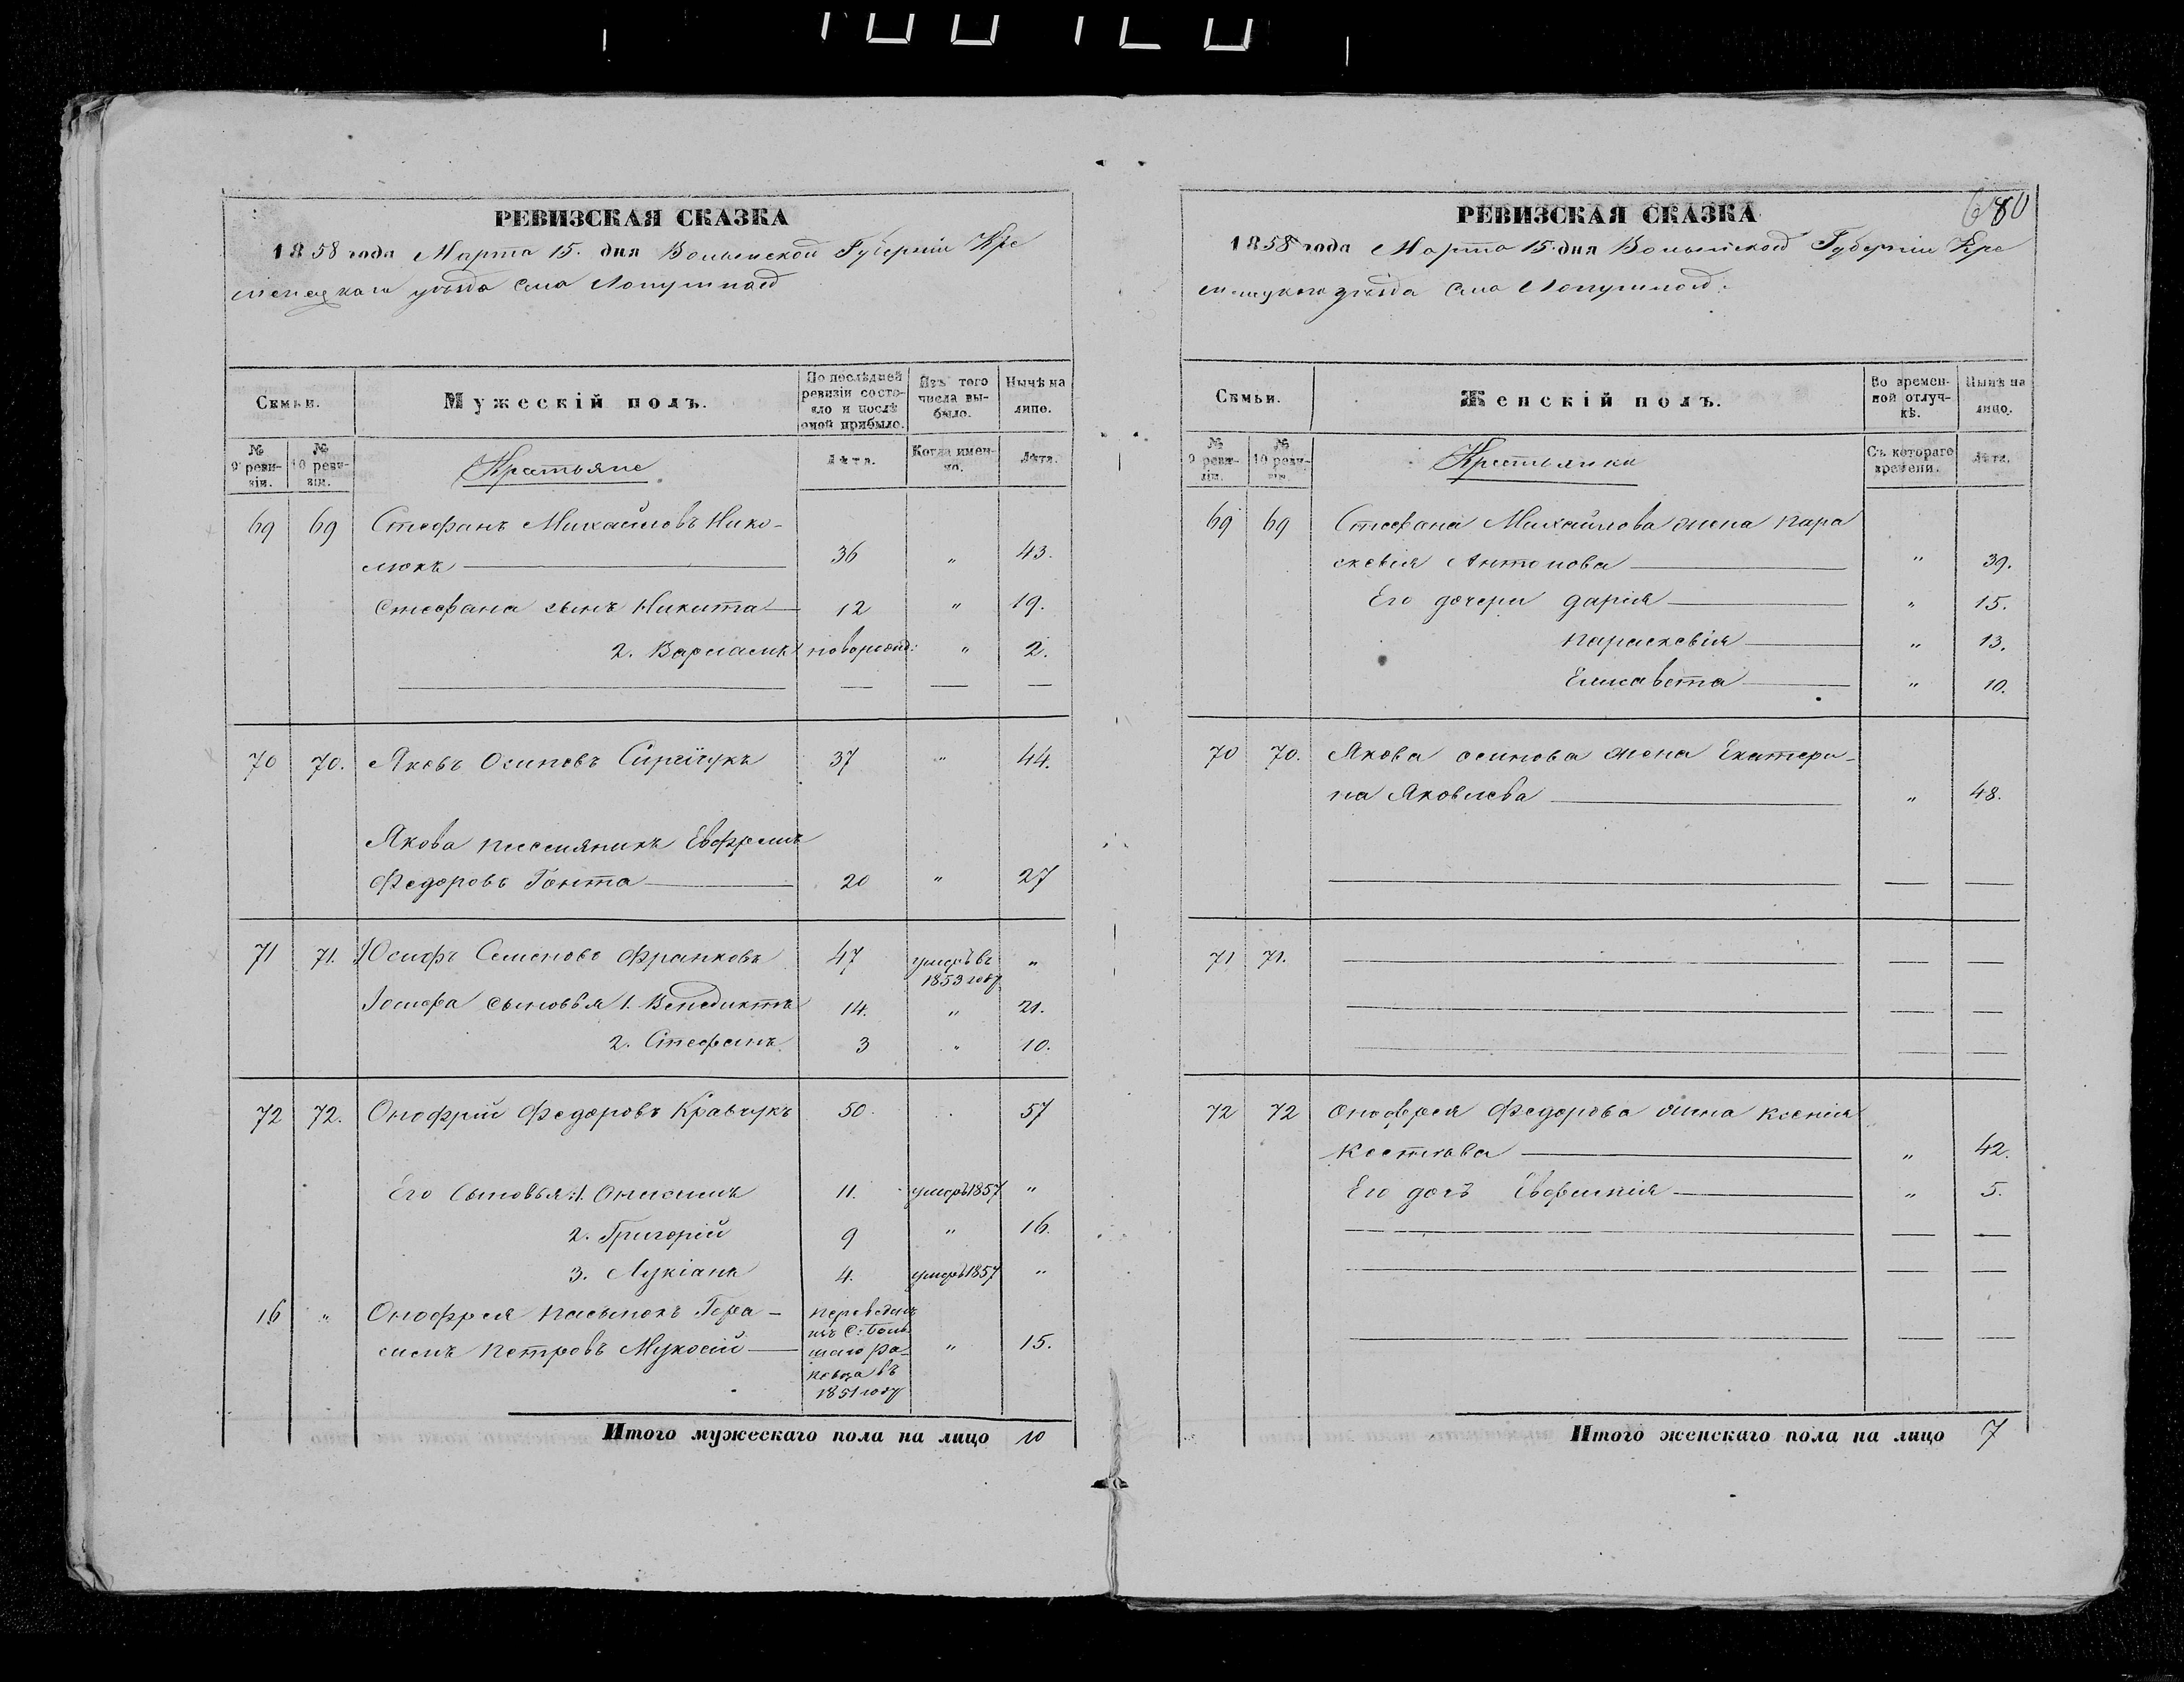 РЕВИЗСКАЯ СКАЗКА
1858 года Марта 15. дня Волынской Губерніи Кре
менецкаго уѣзда села Лопушной
Семьи.
Мужескій полъ.
По послѣдней ревизіи состояло и послѣ оной прибыло.
Изъ того числа выбыло.
Нынѣ на лицо.
№ 9 ревизіи.
№ 10 ревизіи.
Крестьяне
Лѣта.
Когда именно.
Лѣта.
69 69 Стефанъ Михайловъ Нико-
люкъ 36 " 43.
Стефана сынъ Никита 12 " 19.
2. Варлаамъ новорожд: " 2.
70 70. Яковъ Осиповъ Сирейчукъ 37 " 44.
Якова племяникъ Евфремъ
Федоровъ Гонта 20 " 27
71 71. Юсифъ Семеновъ Франковъ 47 умеръ въ 1853 году "
Іосифа сыновья 1. Венедиктъ 14. " 21.
2. Стефанъ 3 " 10.
72 72. Онофрій Федоровъ Кравчукъ 50. 57
Его Сыновья: 1. Онисимъ 11. умеръ 1857 "
2. Григорій 9 " 16.
3. Лукіанъ 4. умеръ 1857 "
16 " Онофрея пасынокъ Гера-
симъ Петровъ Мукосій переведенъ изъ С: Большаго Раковца въ 1851 году " 15.
Итого мужескаго пола на лицо 10
680
РЕВИЗСКАЯ СКАЗКА
1858 года Марта 15 дня Волынской Губерніи Кре
менецкаго уѣзда села Лопушной.
Семьи.
Женскій полъ.
Во временной отлучкѣ.
Нынѣ на лицо.
№ 9 ревизіи.
№ 10 ревизіи.
Крестьянки
Съ котораго времени.
Лѣта.
69 69 Стефана Михайлова жена Пара
скевія Антонова " 39.
Его дочери Дарія " 15.
Параскевія " 13.
Елисавета " 10.
70 70. Якова Осипова жена Екатери-
на Яковлева " 48.
71 71.
72 72 Онофрея Федорова жена Ксенія
Косткова " 42.
Его дочь Евфимія " 5.
Итого женскаго пола на лицо 7